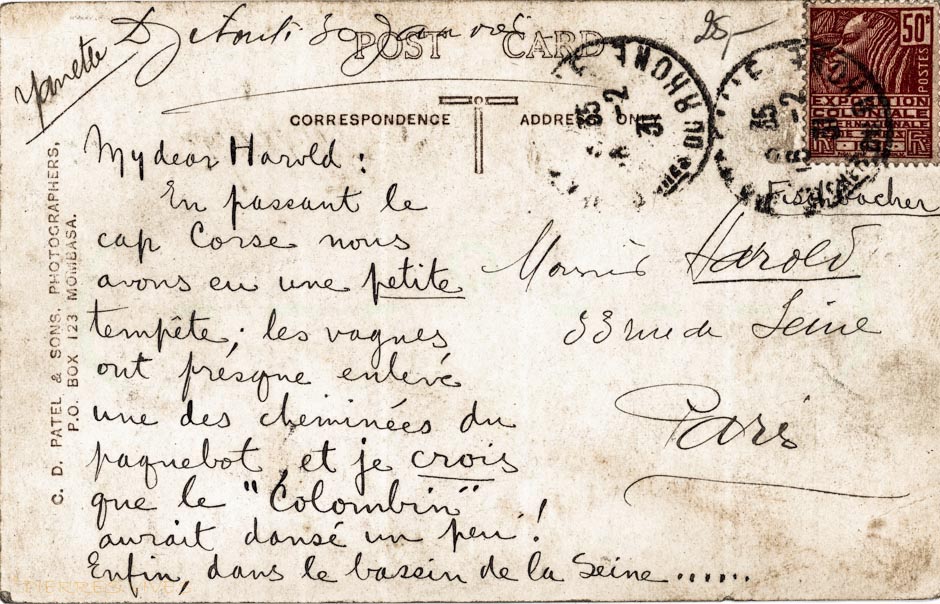 30 Janvier
25,-
Yanette
POST CARD
CORRESPONDENCE
ADDRESS ON
50c
POSTES
EXPOSITION
COLONIALE
INTERNATIONALE
DU RHONE
35
-2
31
35
-2
31
C. D. PATEL & SONS, PHOTOGRAPHERS,
P.O. BOX 123 MOMBASA.
My dear Harold :
En passant le
cap Corse nous
avons eu une petite
tempête ; les vagues
ont présque enlevé
une des cheminées du
paquebot, et je crois
que le "Colombin"
aurait dansé un peu !
Enfin, dans le bassin de la Seine ......
Fischbacher
Harold
33 rue de Seine
Paris